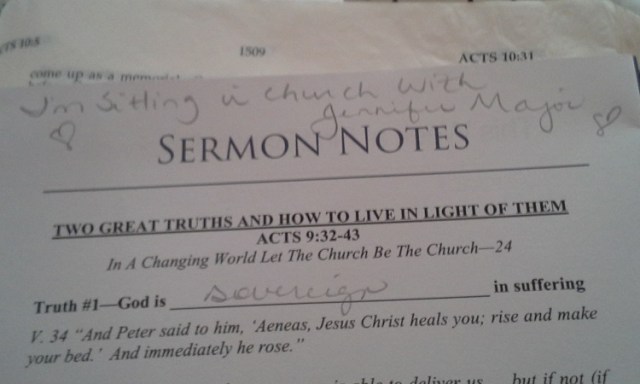 1509
ACTS 10:31
come up as a
I'm sitting in church with
Jennifer Major
SERMON NOTES
TWO GREAT TRUTHS AND HOW TO LIVE IN LIGHT OF THEM
ACTS 9:32-43
In A Changing World Let The Church Be The Church—24
Truth #1—God is sovereign in suffering
V. 34 "And Peter said to him, 'Aeneas, Jesus Christ heals you; rise and make
your bed.' And immediately he rose."
to deliver us but if not (if